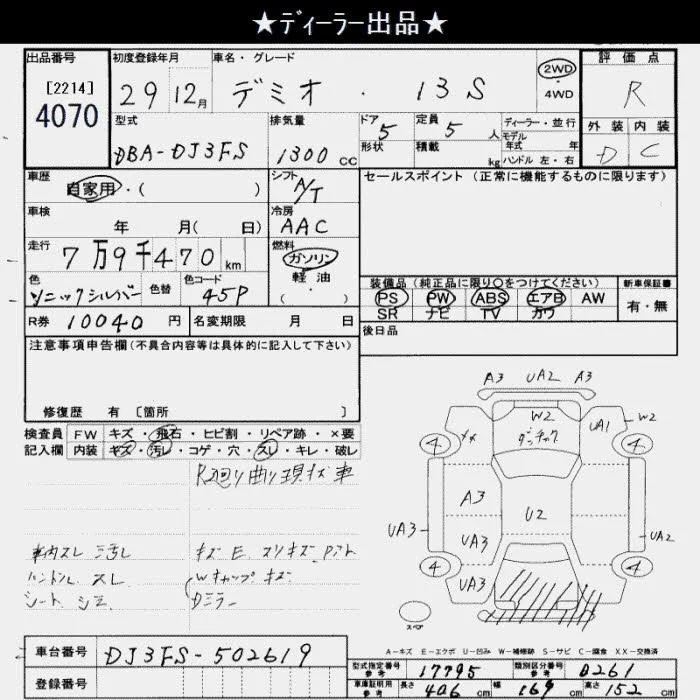 ★ディーラー出品★
出品番号 初度登録年月 車名・グレード 評価点
[2214]
4070
29 12月 デミオ・13S 2WD 4WD R
型式 排気量 ドア 定員 ディーラー・並行 外装 内装
DBA-DJ3FS 1300cc 5 5人 モデル年式 年 D C
形状 積載 kg ハンドル 左・右
車歴 シフト セールスポイント(正常に機能するものに限ります)
自家用・( ) A/T
車検 冷房
年 月( 日) AAC
走行 燃料
7万9千470km ガソリン
軽油・
( )
色 色替 色コード
ソニックシルバー 45P
装備品(純正品に限り○をつけてください) 新車保証書
PS PW ABS エアB AW 有・無
SR ナビ TV カワ
R券 10040円 名変期限 月 日 後日品
注意事項申告欄(不具合内容等は具体的に記入して下さい)
修復歴 有 〔箇所 〕
検査員 FW キズ・飛石・ヒビ割・リペア跡・×要
記入欄 内装 キズ・汚レ・コゲ・穴・スレ・キレ・破レ
R廻り曲り現状車
車内スレ 汚レ キズ E スリキズ
ハンドル スレ Wキャップ キズ
シート シミ Dミラー
A3 UA2 A3
W2 UA1 W2
4 4
A3 U2
UA3 UA3 UA2
4 4
UA3
スペア
A-キズ E-エクボ U-凹み W-補修跡 S-サビ C-腐食 XX-交換済
車台番号 DJ3FS-502619
登録番号
型式指定番号 参考 17795 類別区分番号 参考 0261
車庫証明用 参考 長さ 406cm 幅 169cm 高さ 152cm